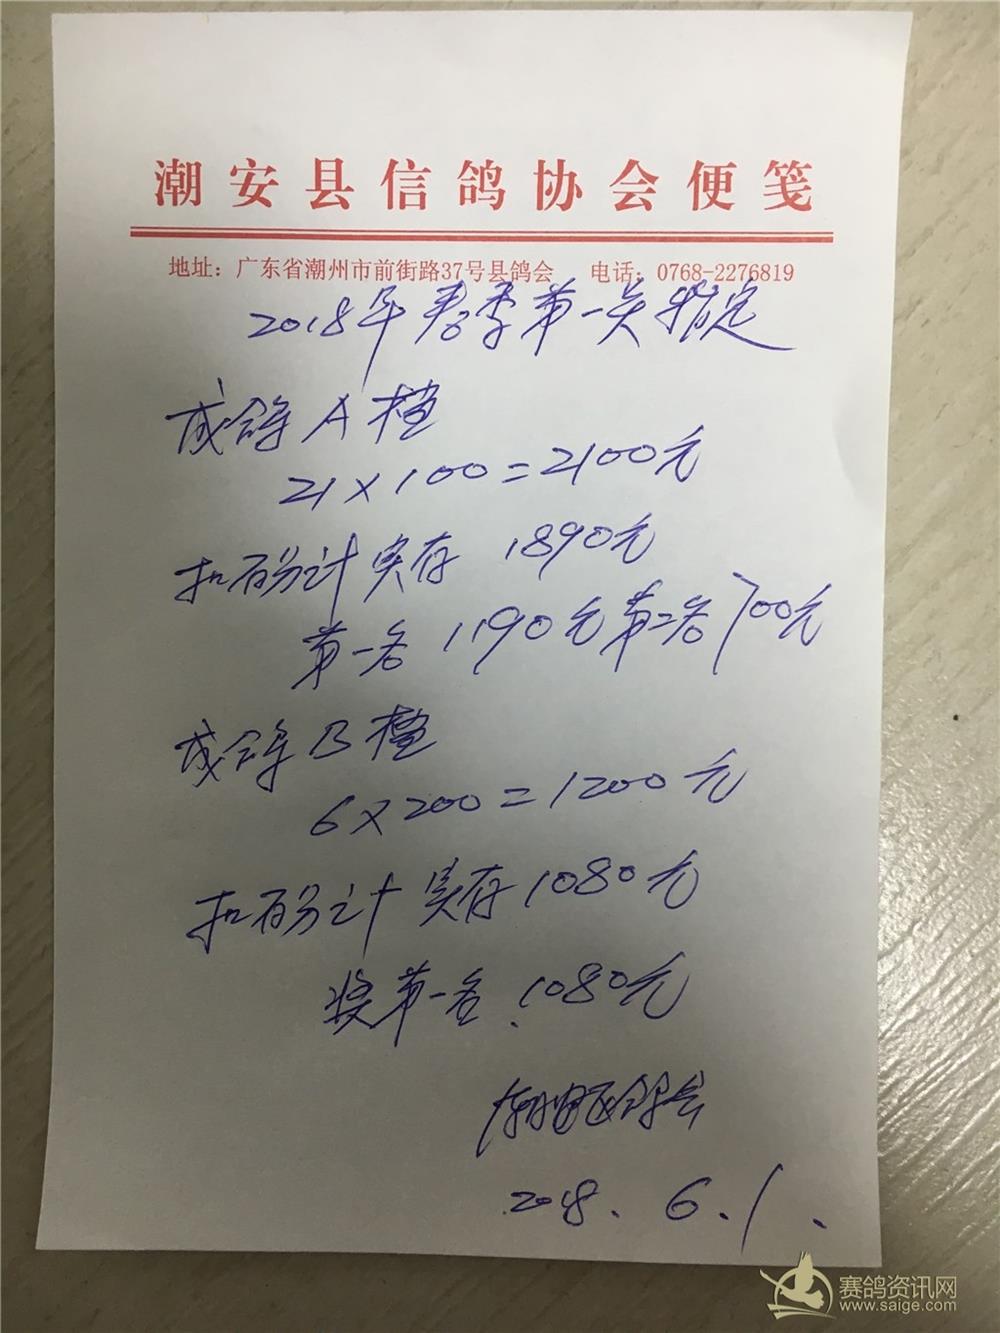 潮安县信鸽协会便笺
地址：广东省潮州市前街路37号县鸽会 电话：0768-2276819
2018年春季第一关指定
成鸽A档
21×100=2100元
扣百分计实存 1890元
第一名1190元第二名700元
成鸽B档
6×200=1200元
扣百分计实存1080元
奖第一名.1080元
潮安区鸽会
2018.6.1.
赛鸽资讯网
www.saige.com